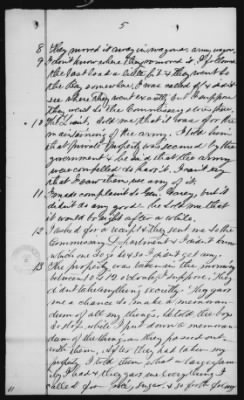 5
8 They moved it away in wagons, army wagons.
9 I don't know where they moved it.
the last load and they went to
the somewhere, I was called off & didn't
see where they went exactly but I suppose
they went to the Commissary
10 The told me that it was for the
maintaining of the army. I told him
that private property was secured by the
government & he said that the army
was compelled to have it. I can't say
that I saw them use any of it.
11 I made complaint to Gen. but it
didn't do any good. He told me that
it would be right after a while.
12 I asked for a receipt & they sent me to the
Commissary Department & I didn't know
which one to go to & so I didn't get any.
13 The property was taken in the morning
between & 10 o'clock I suppose. They
didn't take anything secretly. They gave
me a chance to make a memoran-
dum of all my things. I told the boy
to stop while I put down a memoran-
dum of the things as they passed out
with them. After they had taken my
property I told them what a large fam-
ily I had & they gave me everything I
called for Sugar, & so forth for my